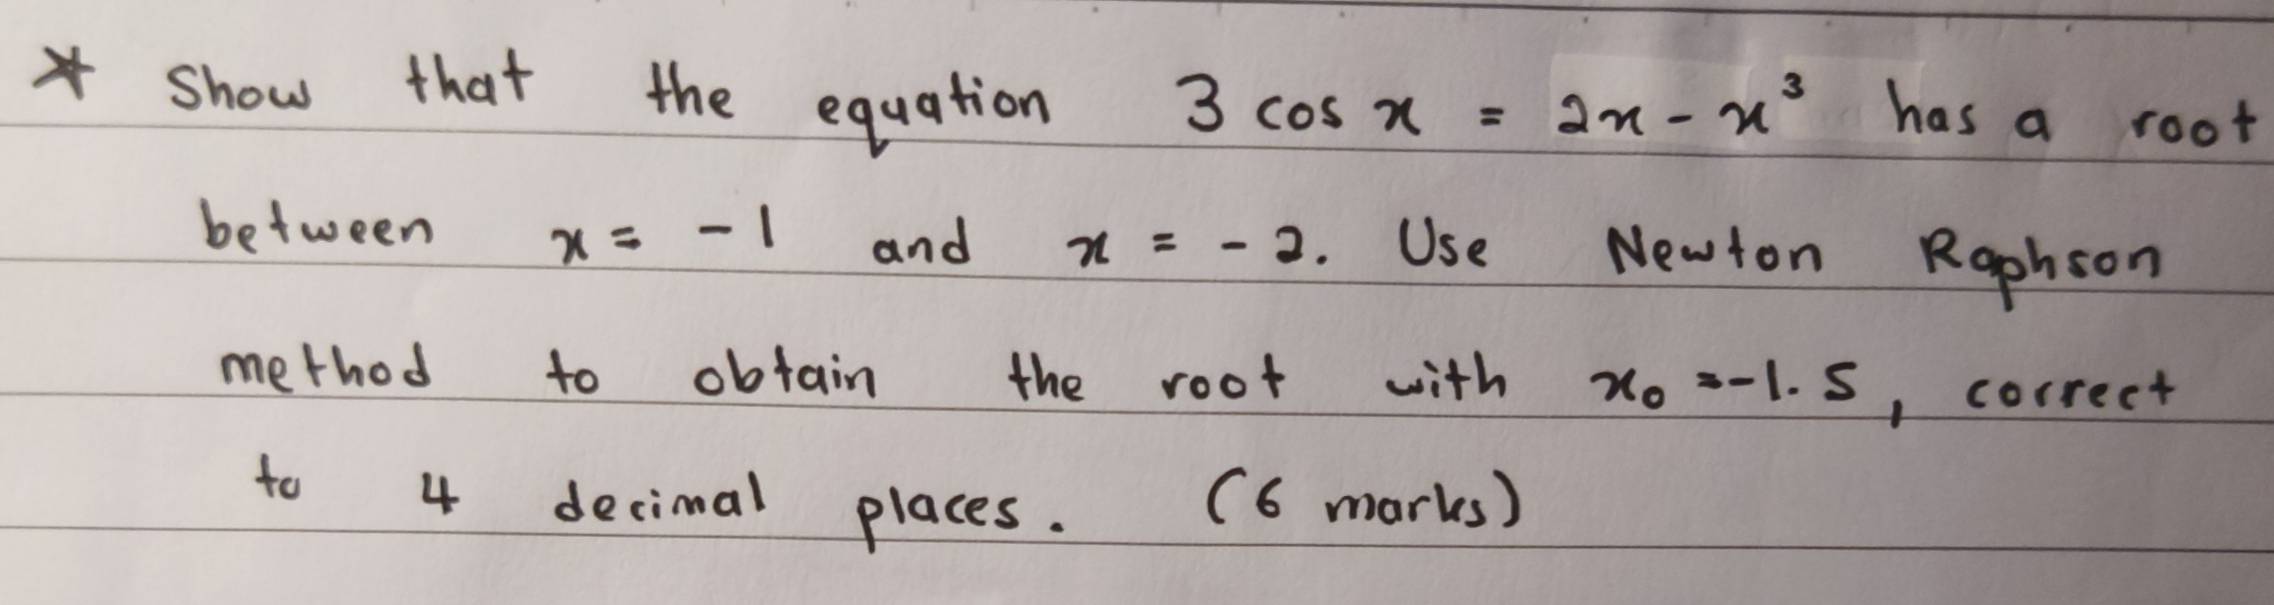 * Show that the equation 3 cos x = 2x - x³ has a root
between x = -1 and x = -2. Use Newton Raphson
method to obtain the root with x₀ = -1.5, correct
to 4 decimal places. (6 marks)